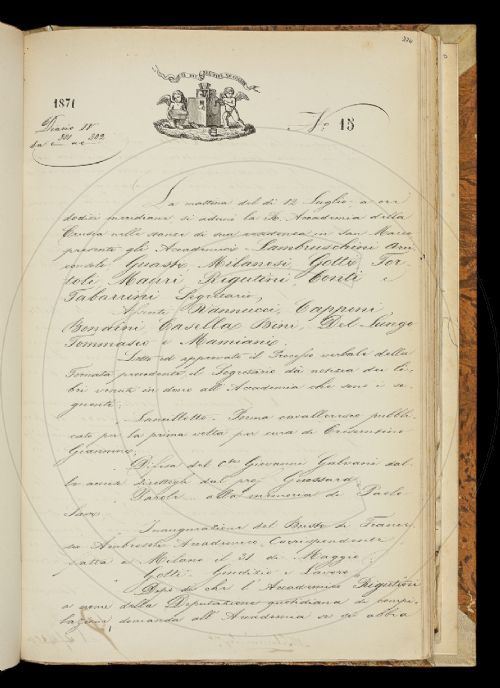 226
1871
Diario IV
da c. 301 a c. 302
No 15
La mattina del dì 12 Luglio a ore
dodici meridiane si adunò la R. Accademia della
Crusca nelle stanze di sua residenza in San Marco
presenti gli Accademici Lambruschini Arci
consolo, Guasti, Milanesi, Gotti, Tor
toli, Mauri, Rigutini, Conti e
Tabarrini Segretario,
Assenti Vannucci, Capponi,
Bendini, Casella, Bini, Del Lungo
Tommaseo e Mamiani,
Letto ed approvato il Processo verbale della
Tornata precedente il Segretario dà notizia dei li-
bri venuti in dono all'Accademia che sono i se-
guenti:
Lancillotto - Poema cavalleresco pubbli
cato per la prima volta per cura di Crescentino
Giannini,
Difesa del Cte Giovanni Galvani dal-
le accuse direttegli dal prof
Parole alla memoria di Paolo
Inaugurazione del Busto di Frances
co Ambrosoli Accademico Corrispondente
fatta a Milano il 31 di Maggio,
Gotti - Giudizio e Lavoro,
Dopo di che l'Accademico Rigutini
a nome della Deputazione quotidiana di compi-
lazione domanda all'Accademia se si abbia